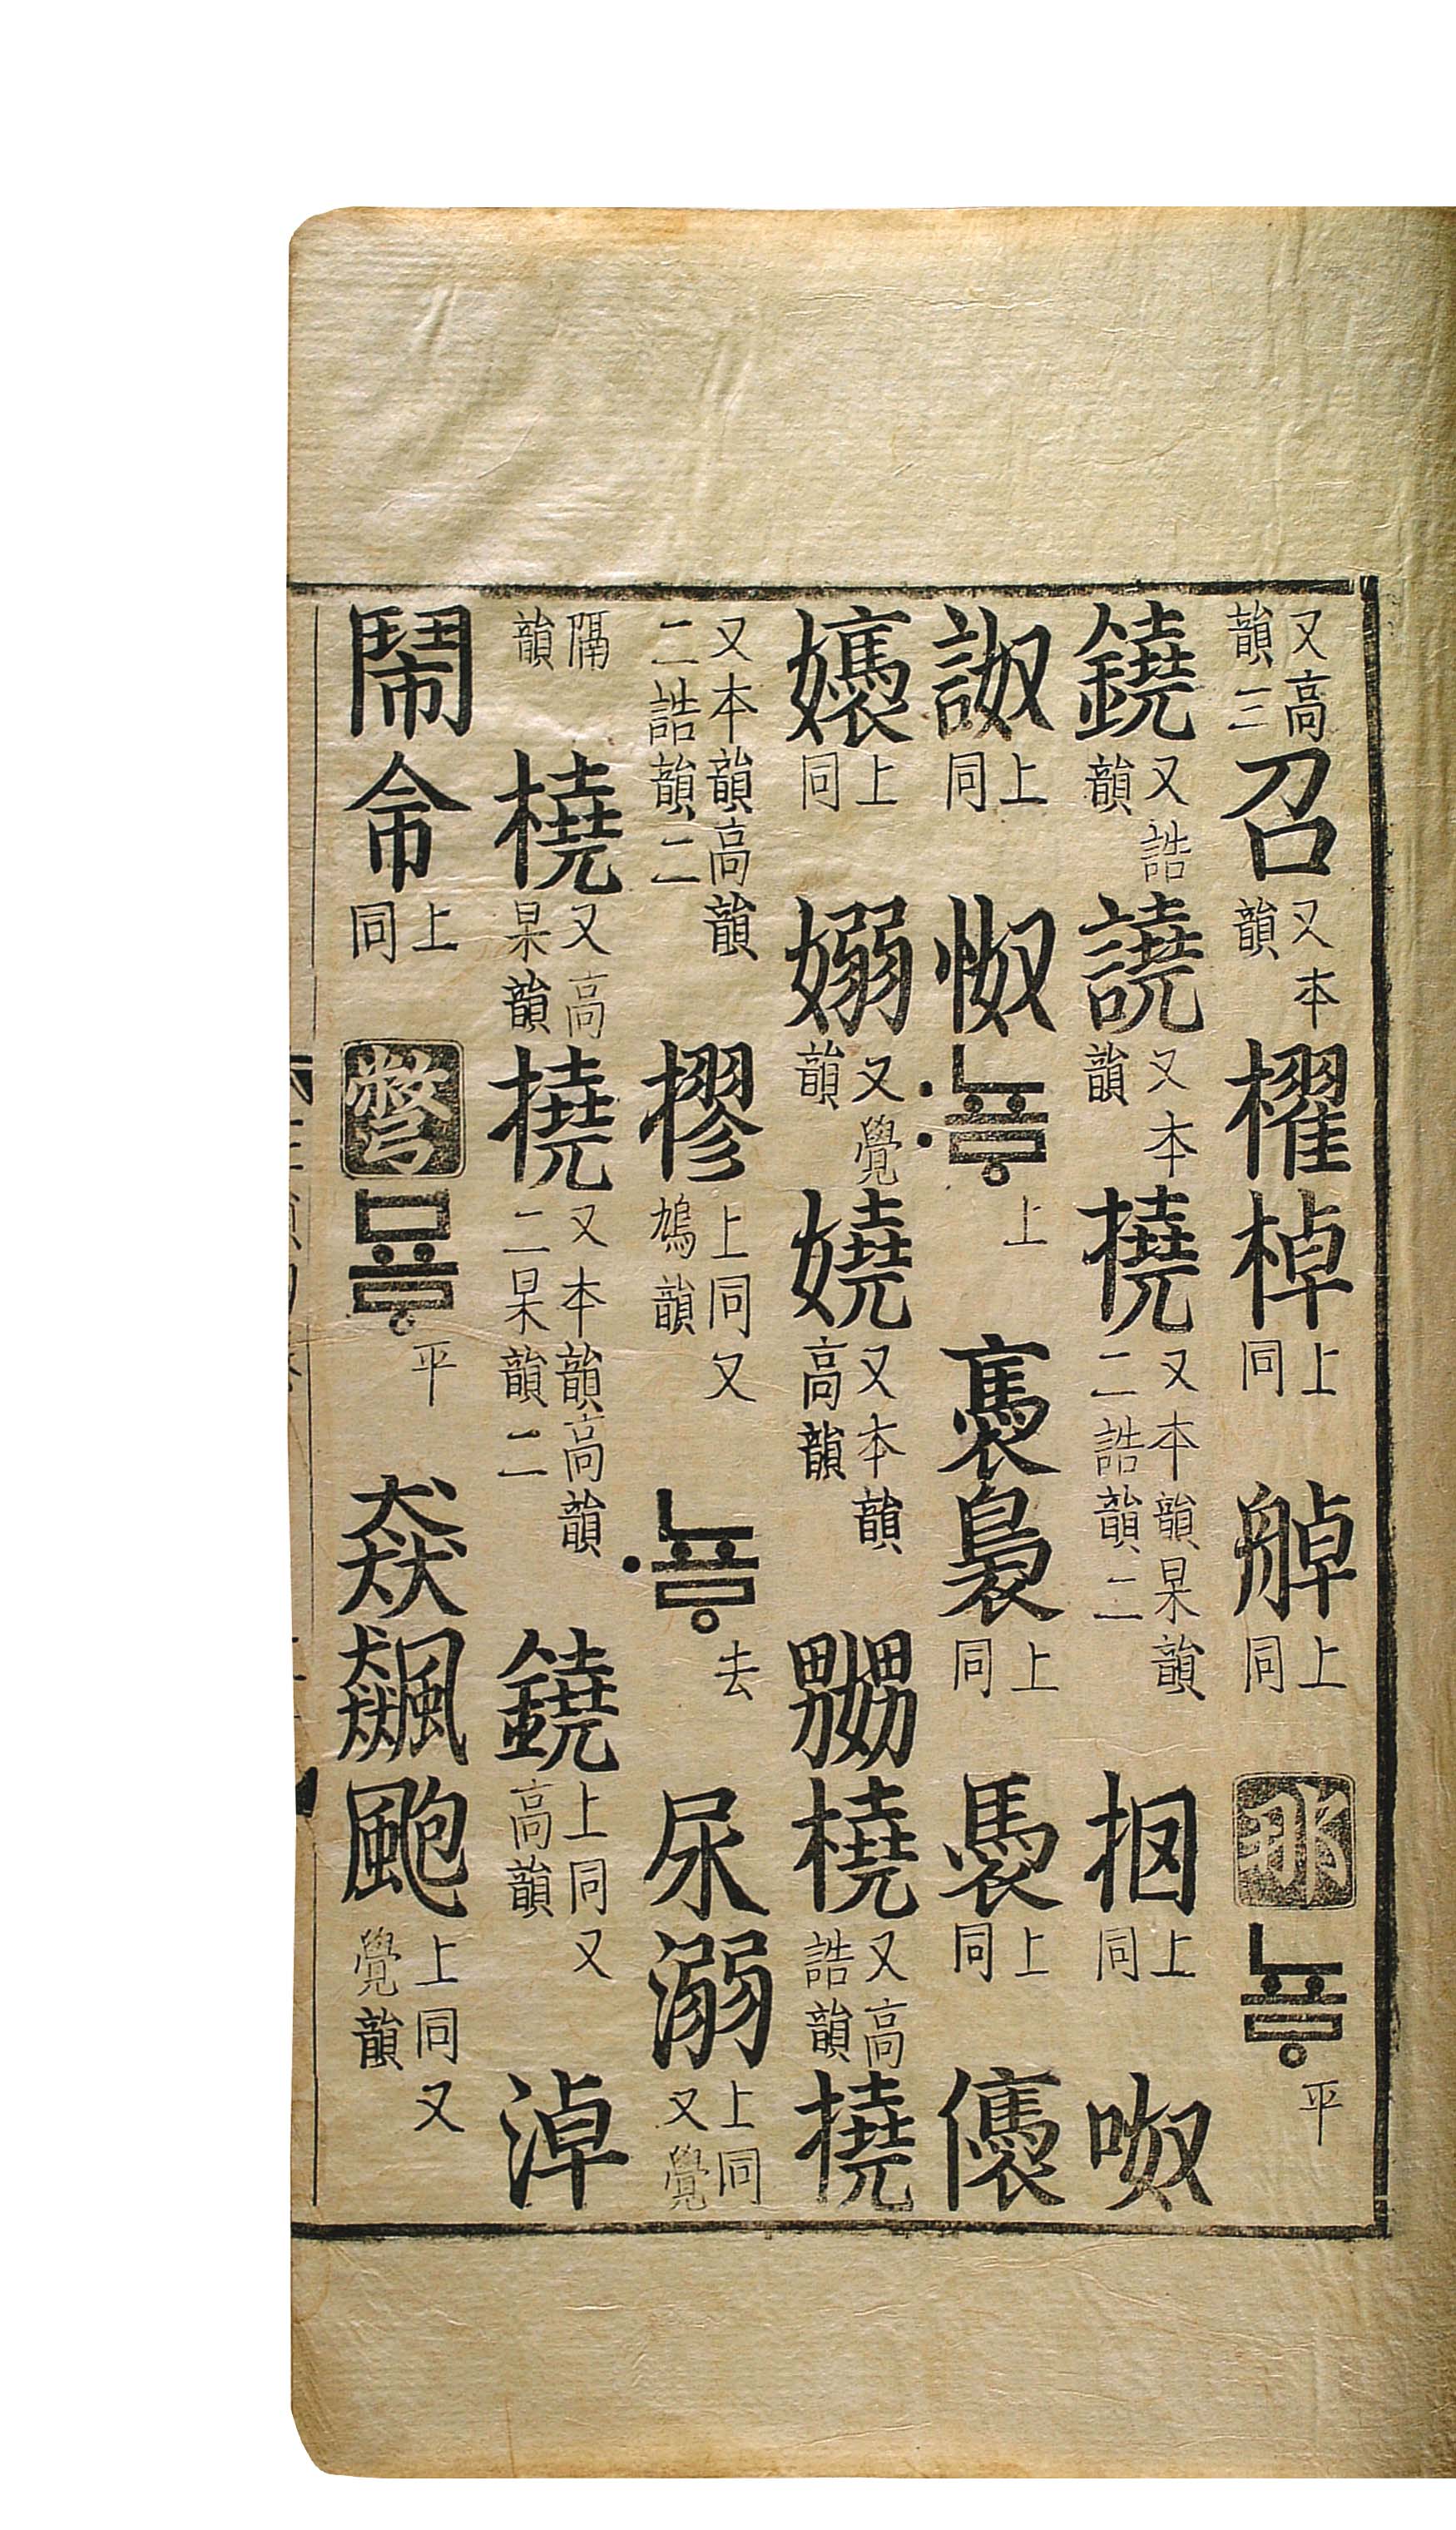 又高韻三召又本韻櫂棹上同䑲上同那뇨ᇢ平
鐃又誥韻譊又本韻橈又本韻杲韻二誥韻二上同呶
詉上同怓:뇨ᇢ上褭裊上同上同
上同嫋又覺韻嬈又本韻高韻嬲橈又高誥韻撓
又本韻高韻二誥韻二摎上同又鳩韻·뇨ᇢ去尿溺上同又覺
隔韻橈又高杲韻撓又本韻高韻二杲韻二鐃上同又高韻淖
鬧上同彆뵤ᇢ平猋飆颮上同又覺韻